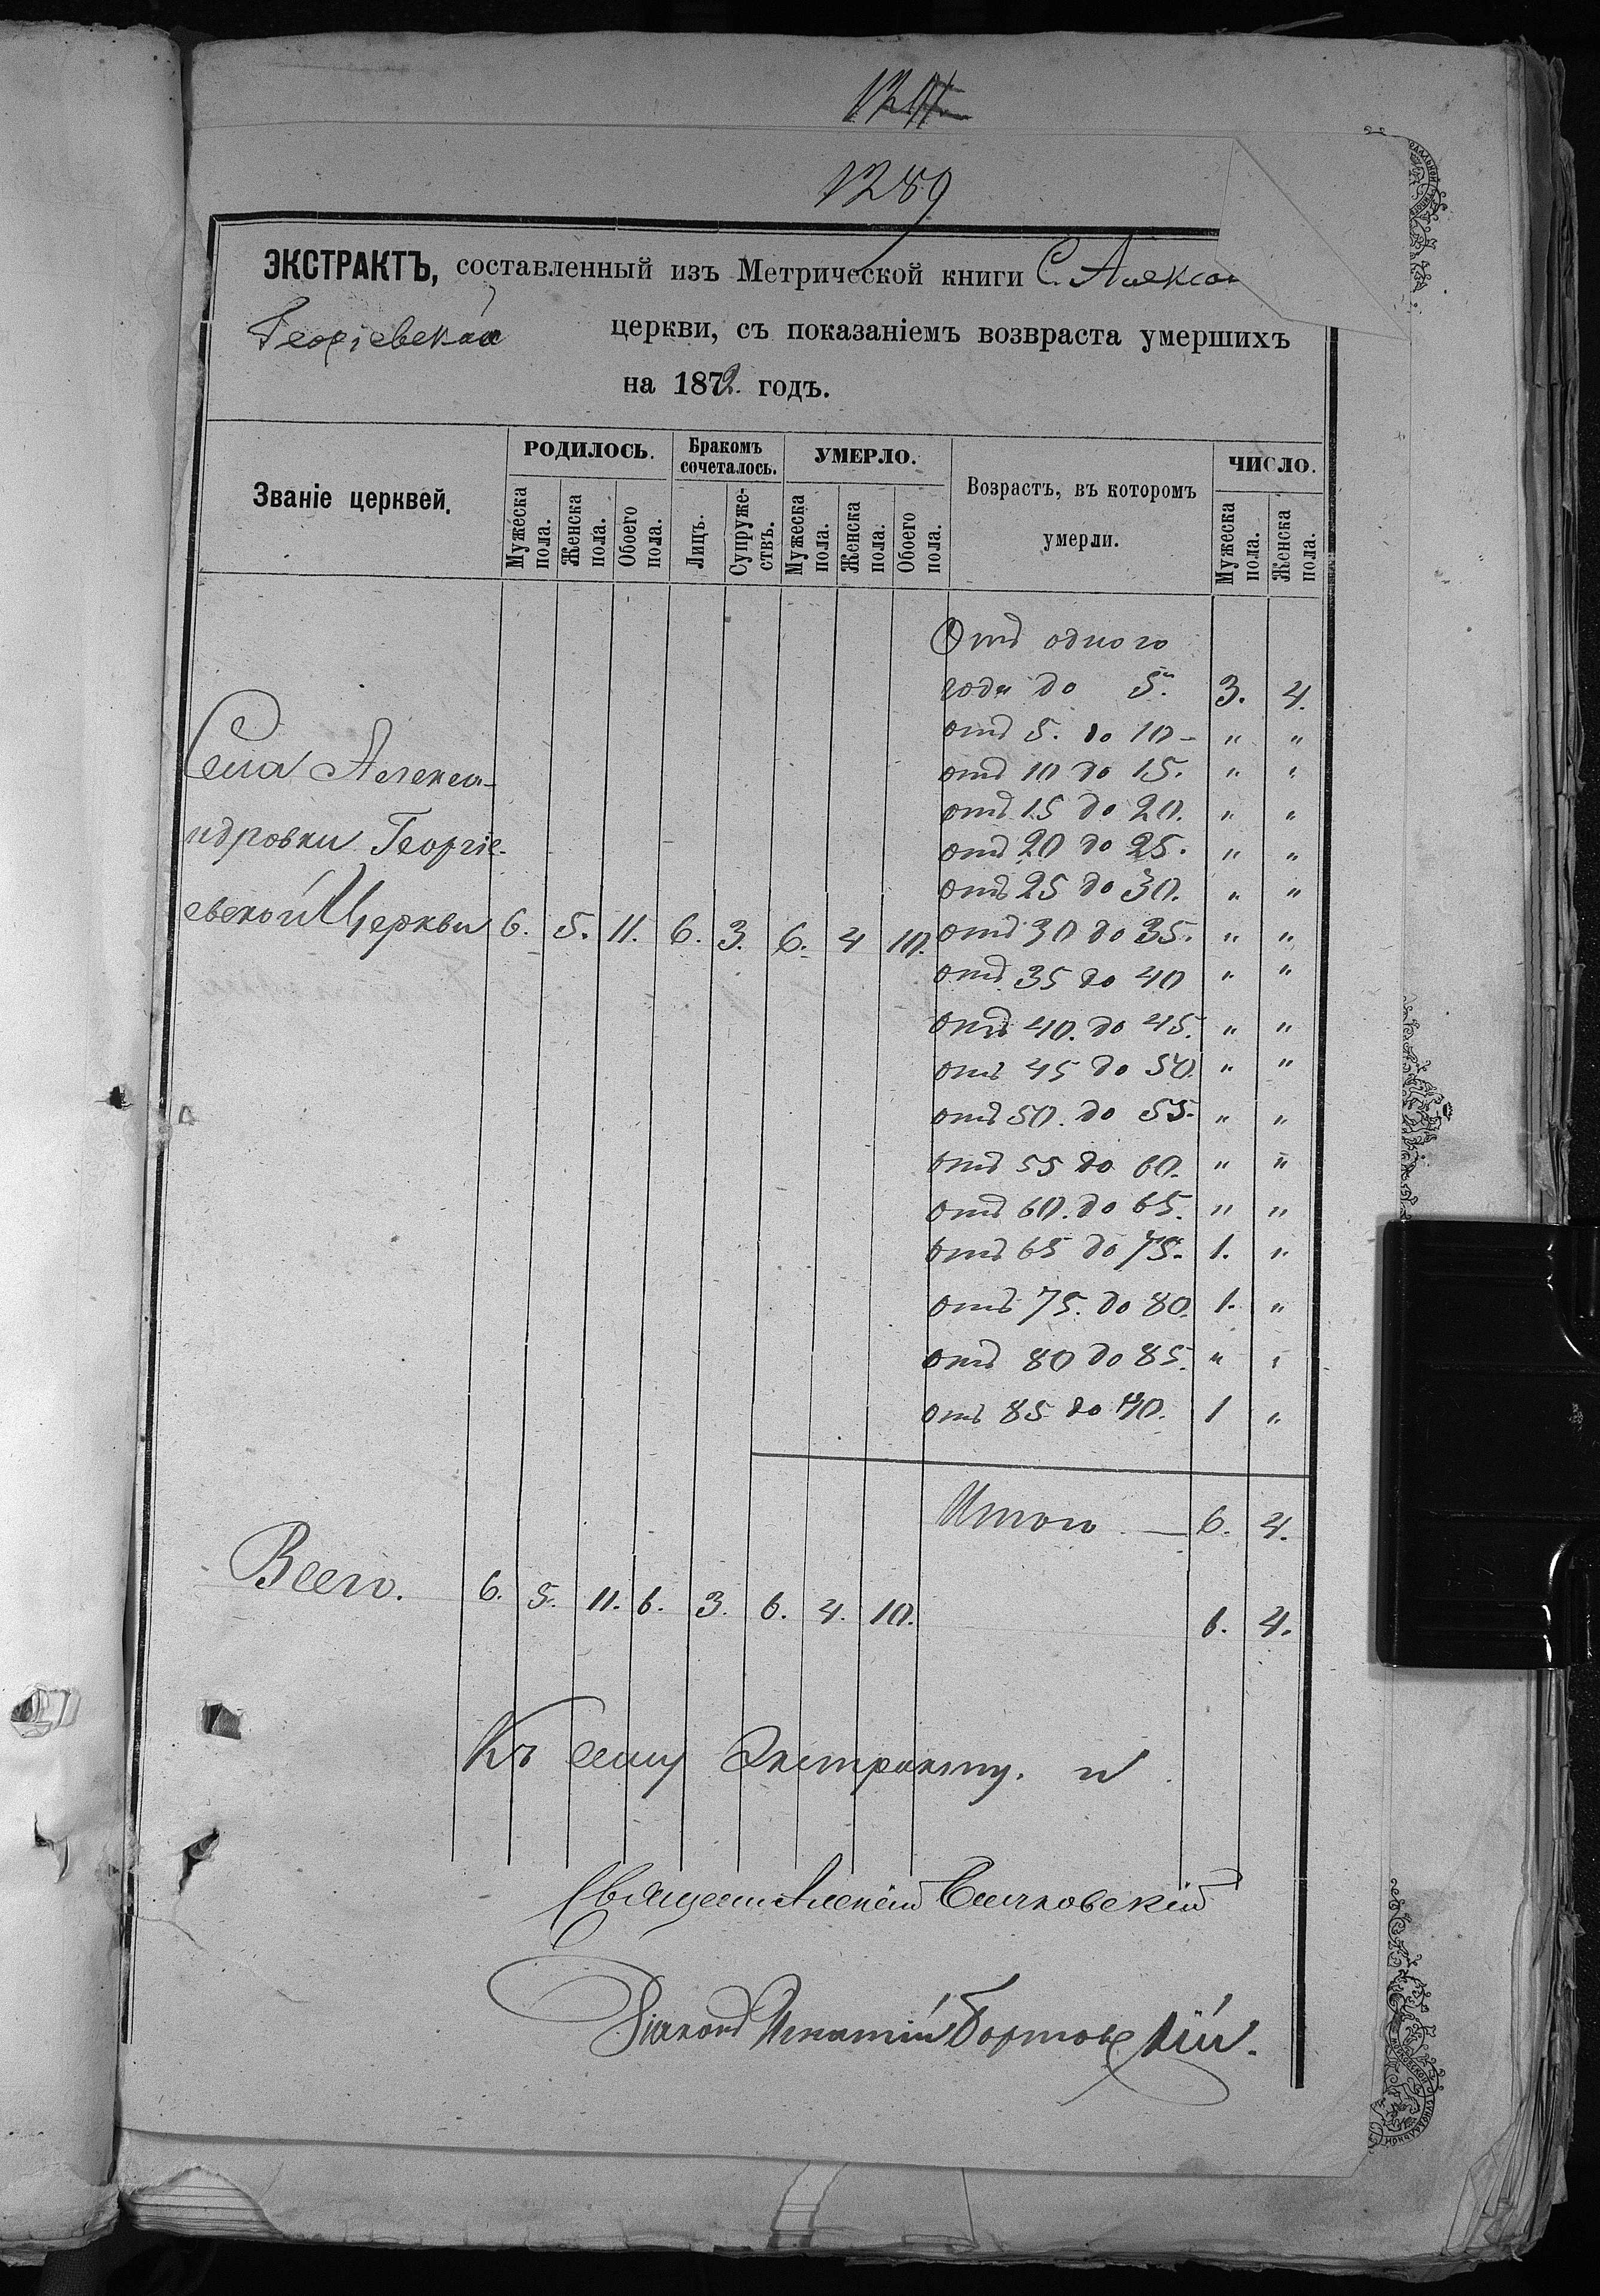 1289
ЭКСТРАКТЪ, составленный изъ Метрической книги С. Алекса
Георгіевской церкви, съ показаніемъ возвраста умершихъ
на 1872. годъ.
Званіе церквей.
РОДИЛОСЬ.
Бракомъ сочеталось.
УМЕРЛО.
Возрастъ, въ которомъ умерли.
ЧИСЛО.
Мужеска пола.
Женска пола.
Обоего пола.
Лицъ.
Супруже-ствъ.
Мужеска пола.
Женска пола.
Обоего пола.
Мужеска пола.
Женска пола.
Отъ одного
года до 5. 3. 4.
отъ 5. до 10 - " "
отъ 10 до 15. " "
отъ 15 до 20. " "
отъ 20 до 25. " "
отъ 25 до 30. " "
Села Алекса-
ндровки Георгіе-
евской Церкви 6. 5. 11. 6. 3. 6. 4 10. отъ 30 до 35. " "
отъ 35 до 40 " "
отъ 40. до 45. " "
отъ 45 до 50. " "
отъ 50. до 55. " "
отъ 55 до 60. " "
отъ 60. до 65. " "
отъ 65 до 75. 1. "
отъ 75. до 80. 1. "
отъ 80 до 85. " "
отъ 85 до 90. 1 "
Итого — 6. 4.
Всего. 6. 5. 11. 6. 3. 6. 4. 10. 6. 4.
Къ сему Экстракту. и
Священ Алексій
Діаконъ Игнатій